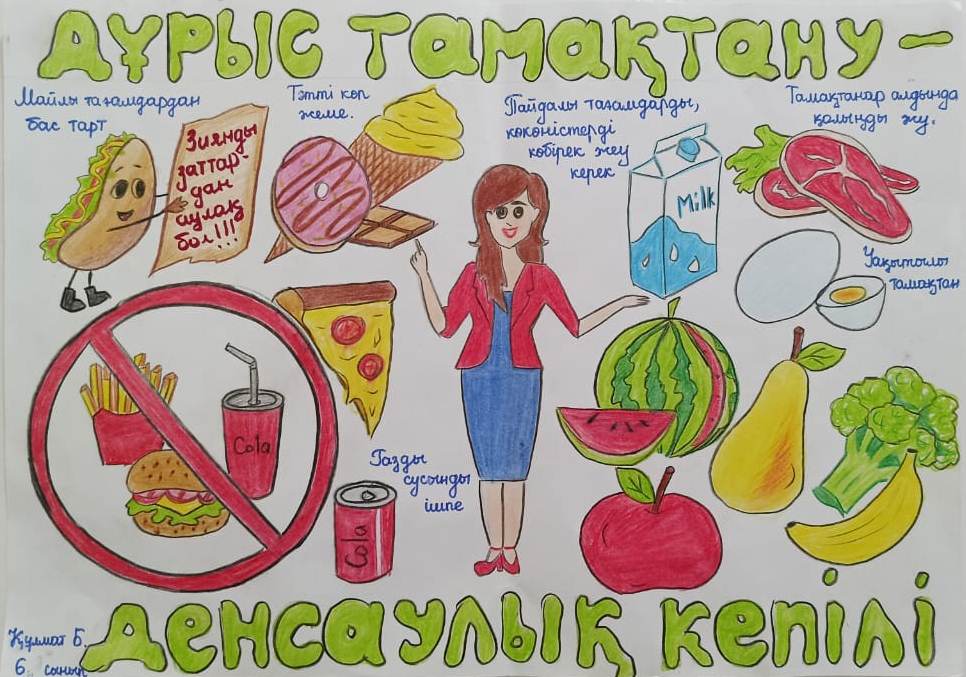 ДҰРЫС ТАМАҚТАНУ –
Майлы тағамдардан
бас тарт
Зиянды
заттар-
дан
аулақ
бол!!!
Тәтті көп
жеме.
Пайдалы тағамдарды,
көкөністерді
көбірек жеу
керек
Milk
Тамақтанар алдында
қолыңды жу.
Уақытылы
тамақтан
Cola
Газды
сусынды
ішпе
Cola
ДЕНСАУЛЫҚ КЕПІЛІ
Құлмат Б.
6 сынып